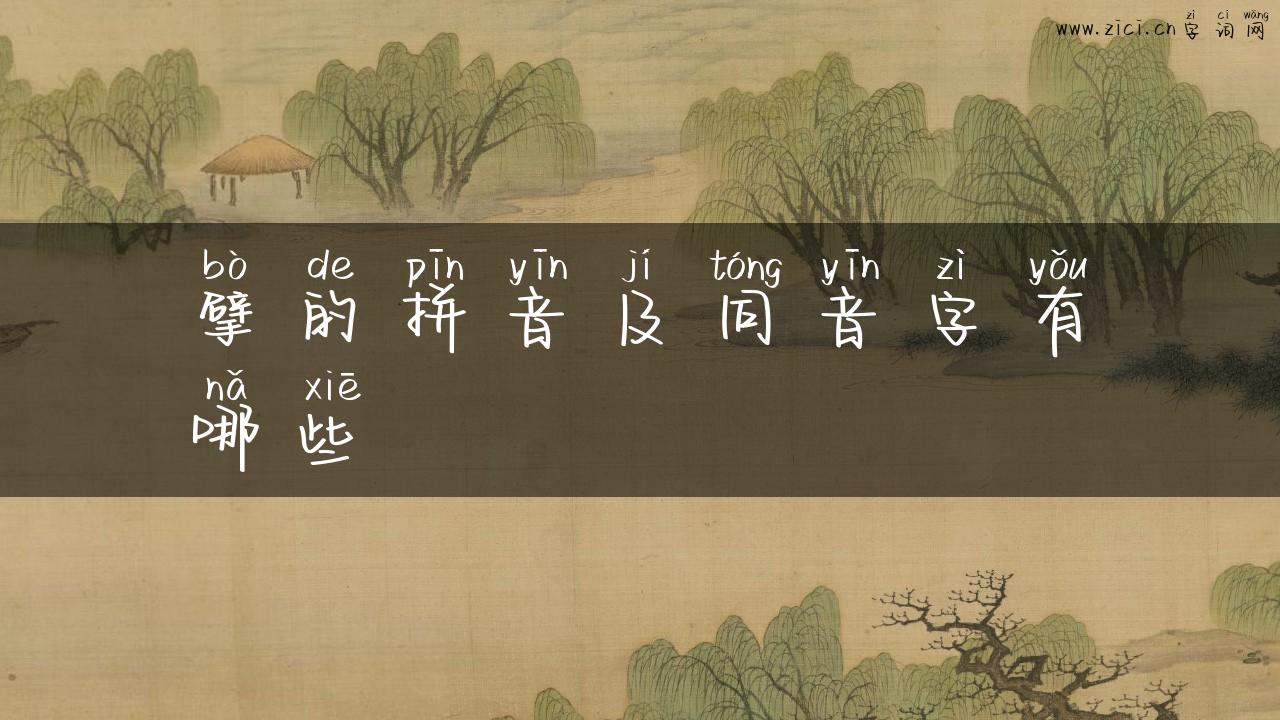 zì cí wǎng
www.zici.cn字词网
bò de pīn yīn jí tóng yīn zì yǒu
擘的拼音及同音字有
nǎ xiē
哪些